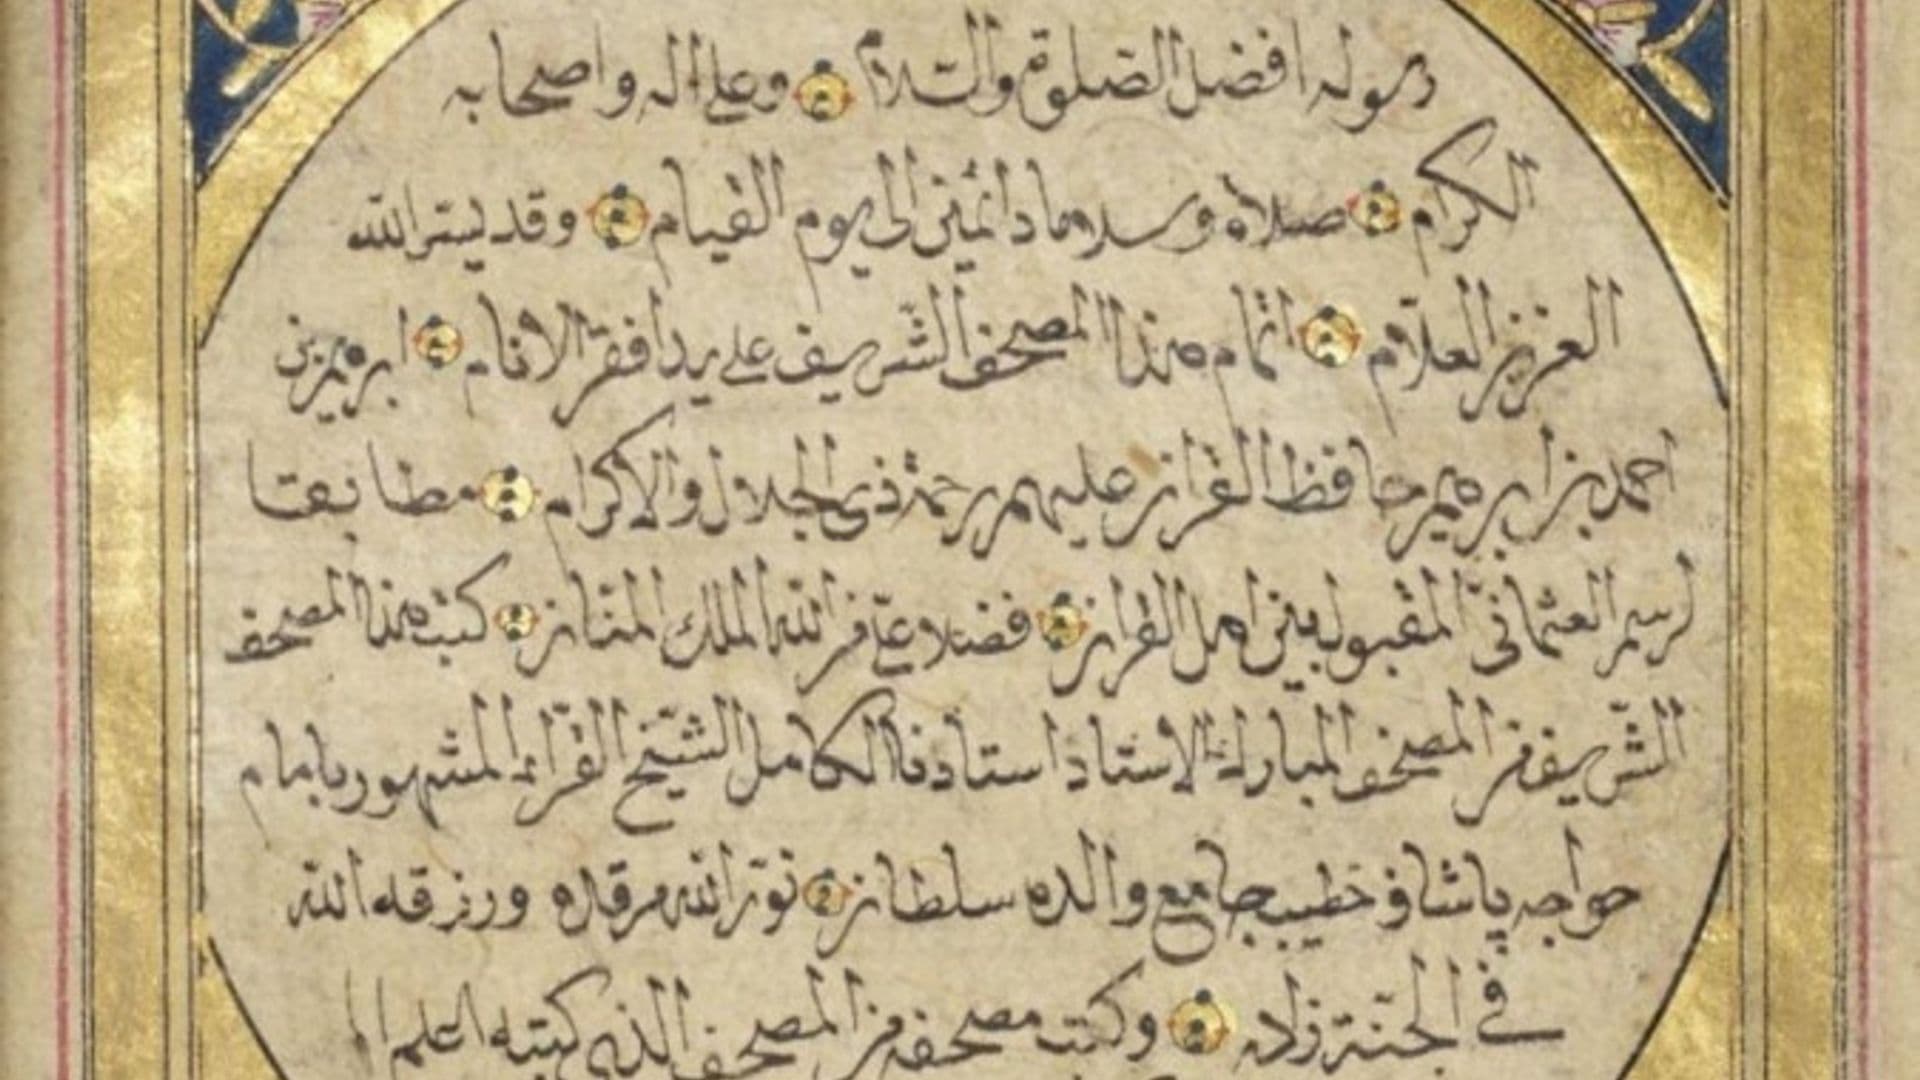 رسوله افضل الصلوة والسلام وعلى اله واصحابه
الكرام صلاة وسلاما دائمين الى يوم القيام وقد يسر الله
العزيز العلام اتمام هذا المصحف الشريف على يد افقر الانام ابرهيم بن
احمد بن ابرهيم حافظ القرآن عليهم رحمة ذى الجلال والاكرام مطابقا
لرسم العثمانى المقبول بين اهل القرآن فضلا من الله الملك المنان كتبت هذا المصحف
الشريف من المصحف المبارك لاستاد استادنا الكامل الشيخ القراء المشهور بامام
خواجه پاشا و خطيب جامع والده سلطان نور الله مرقده ورزقه الله
فى الجنة زاده وكتب مصحفه من المصحف الذى كتبه اعلم